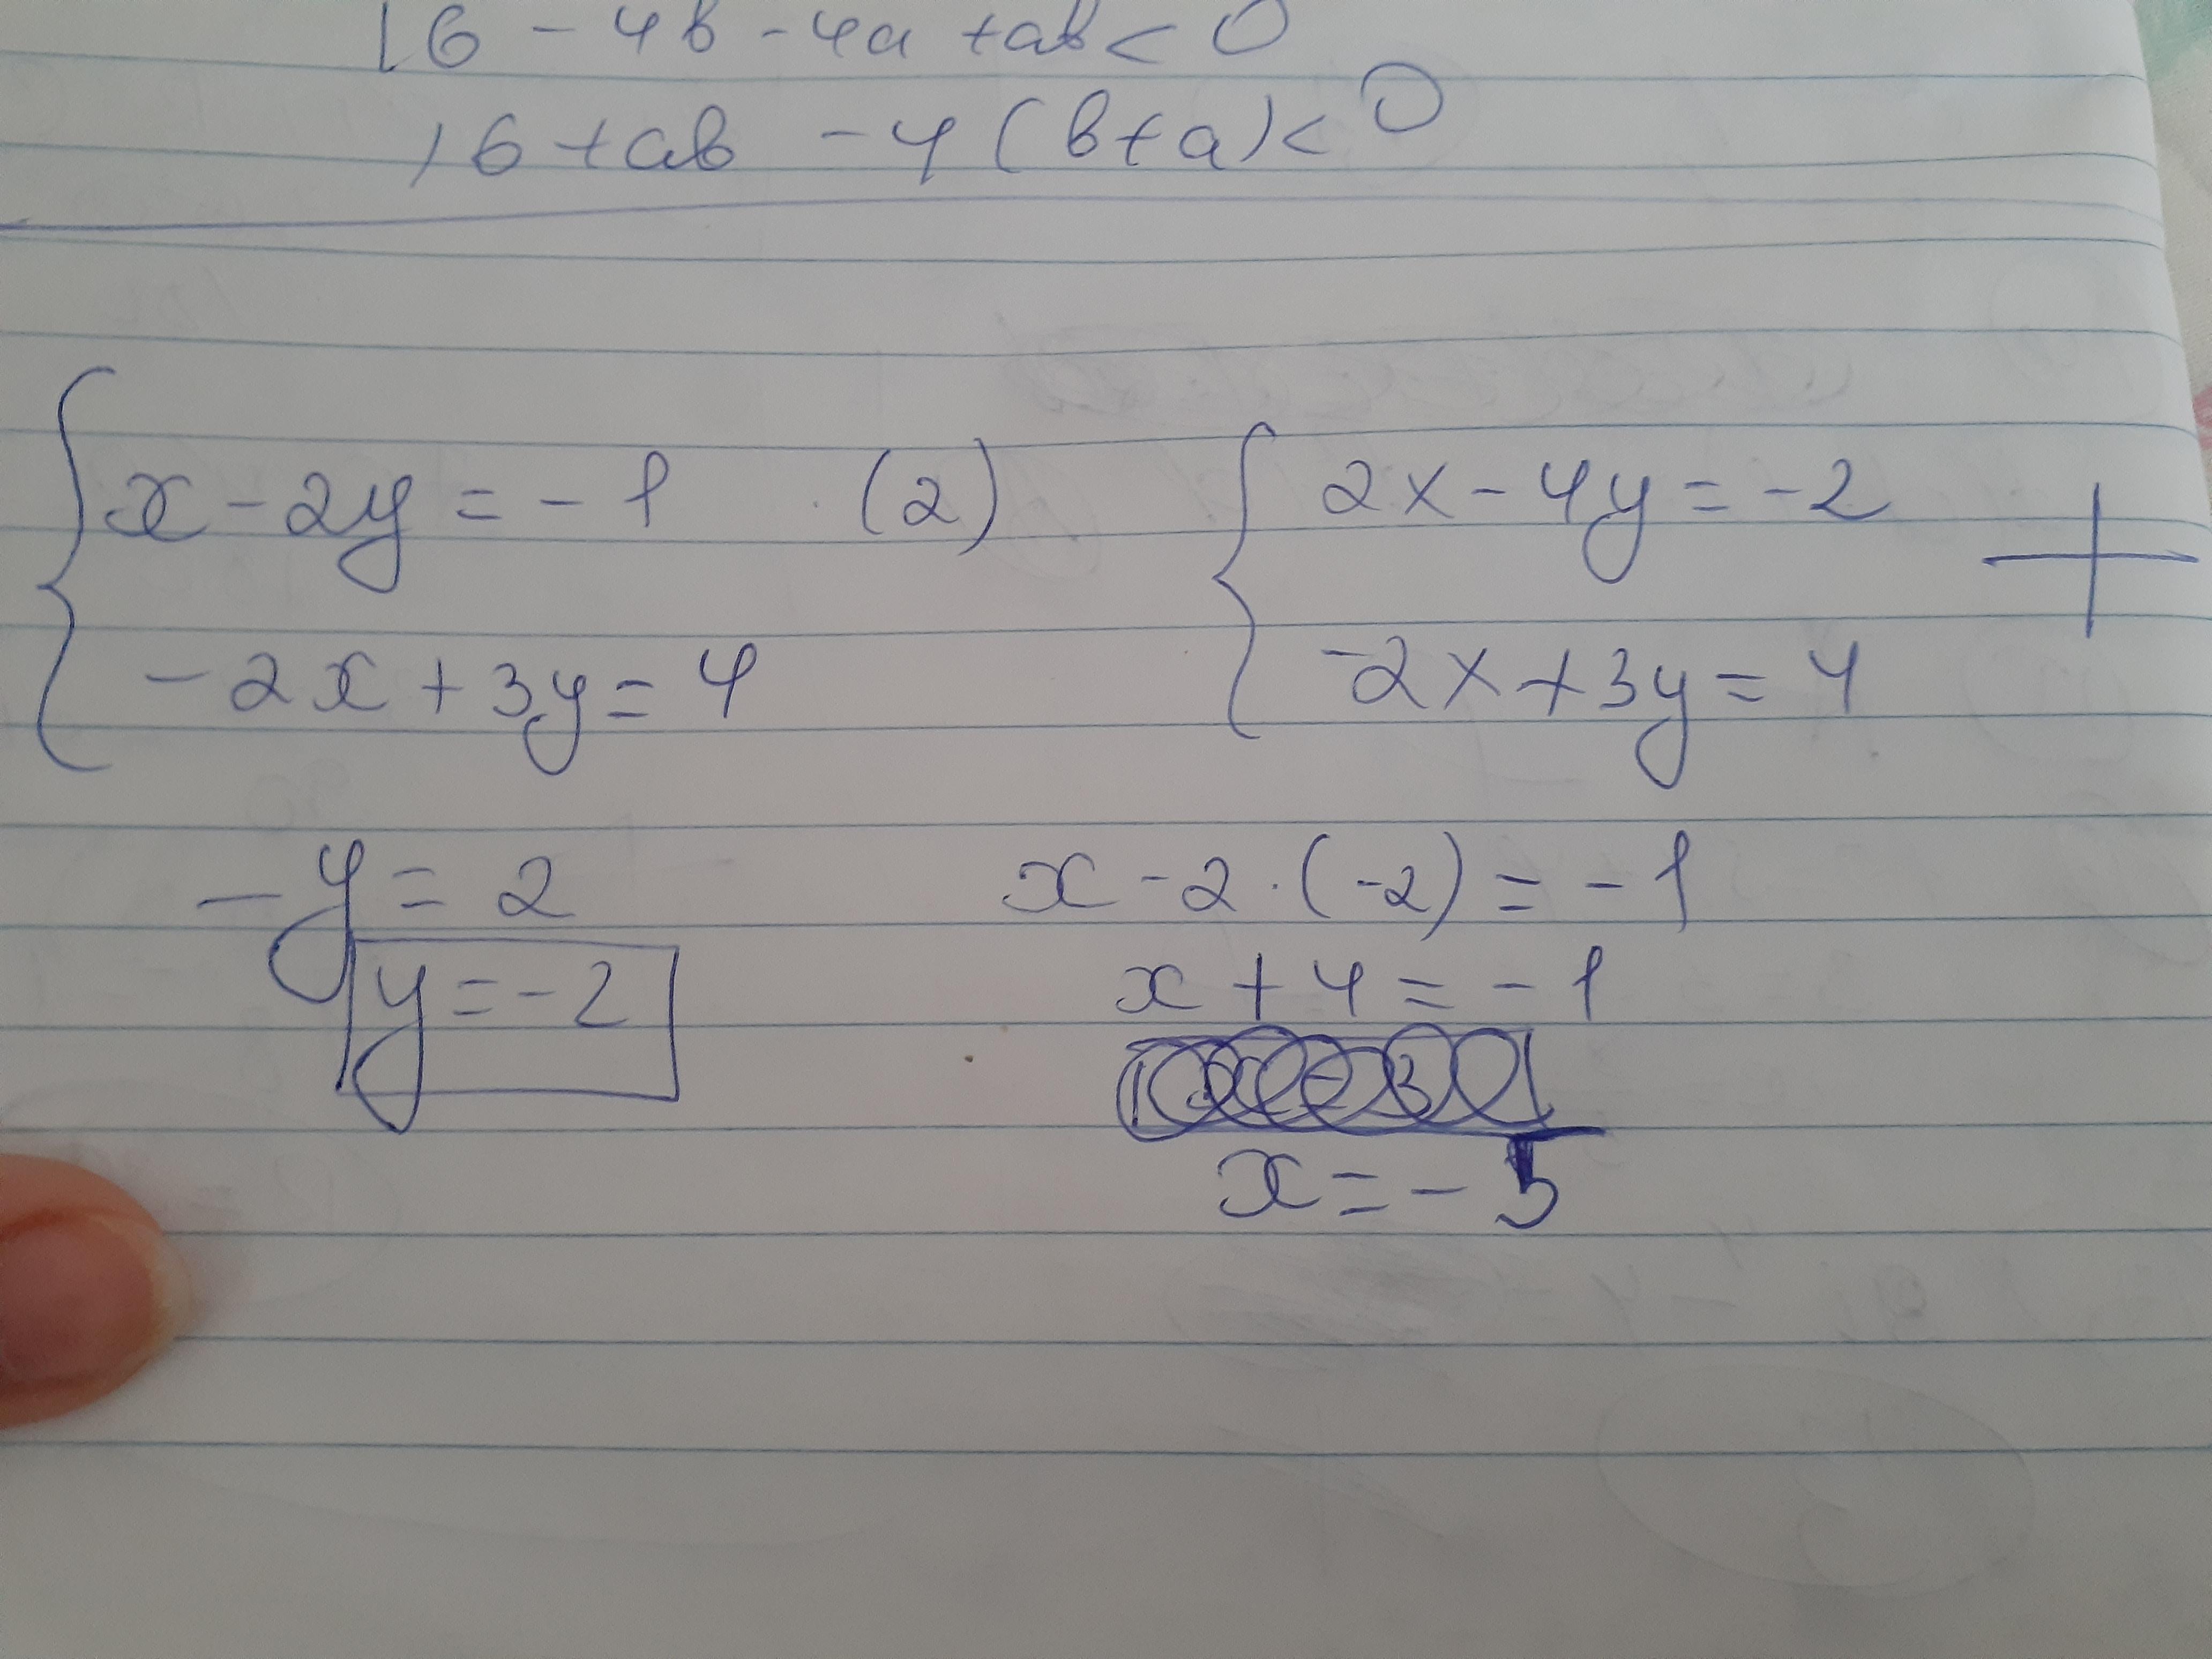 16 - 4b - 4a + ab < 0
16 + ab - 4 (b + a) < 0
x - 2y = - 1 · (2)
- 2x + 3y = 4
2x - 4y = -2 +
-2x + 3y = 4
- y = 2
y = - 2
x - 2 · (-2) = - 1
x + 4 = - 1
x = - 5